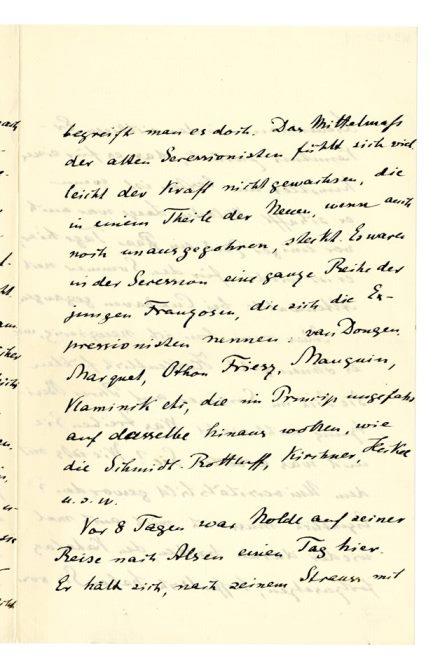 begreift man es doch. Das Mittelmaß
der alten Secessionisten fühlt sich viel
leicht der Kraft nicht gewachsen, die
in einem Theile der Neuen, wenn auch
noch unausgegohren, steckt. Es waren
in der Secession eine ganze Reihe der
jungen Franzosen, die sich die Ex-
pressionisten nennen: van Dongen,
Marquet, Othon Friesz, Manguin,
Vlaminck etc, die im Prinzip ungefähr
auf dasselbe hinaus wollen, wie
die Schmidt-Rottluff, Kirchner, Heckel
u. s. w.
Vor 8 Tagen war Nolde auf seiner
Reise nach Alsen einen Tag hier.
Er hält sich, nach seinem Streuss mit